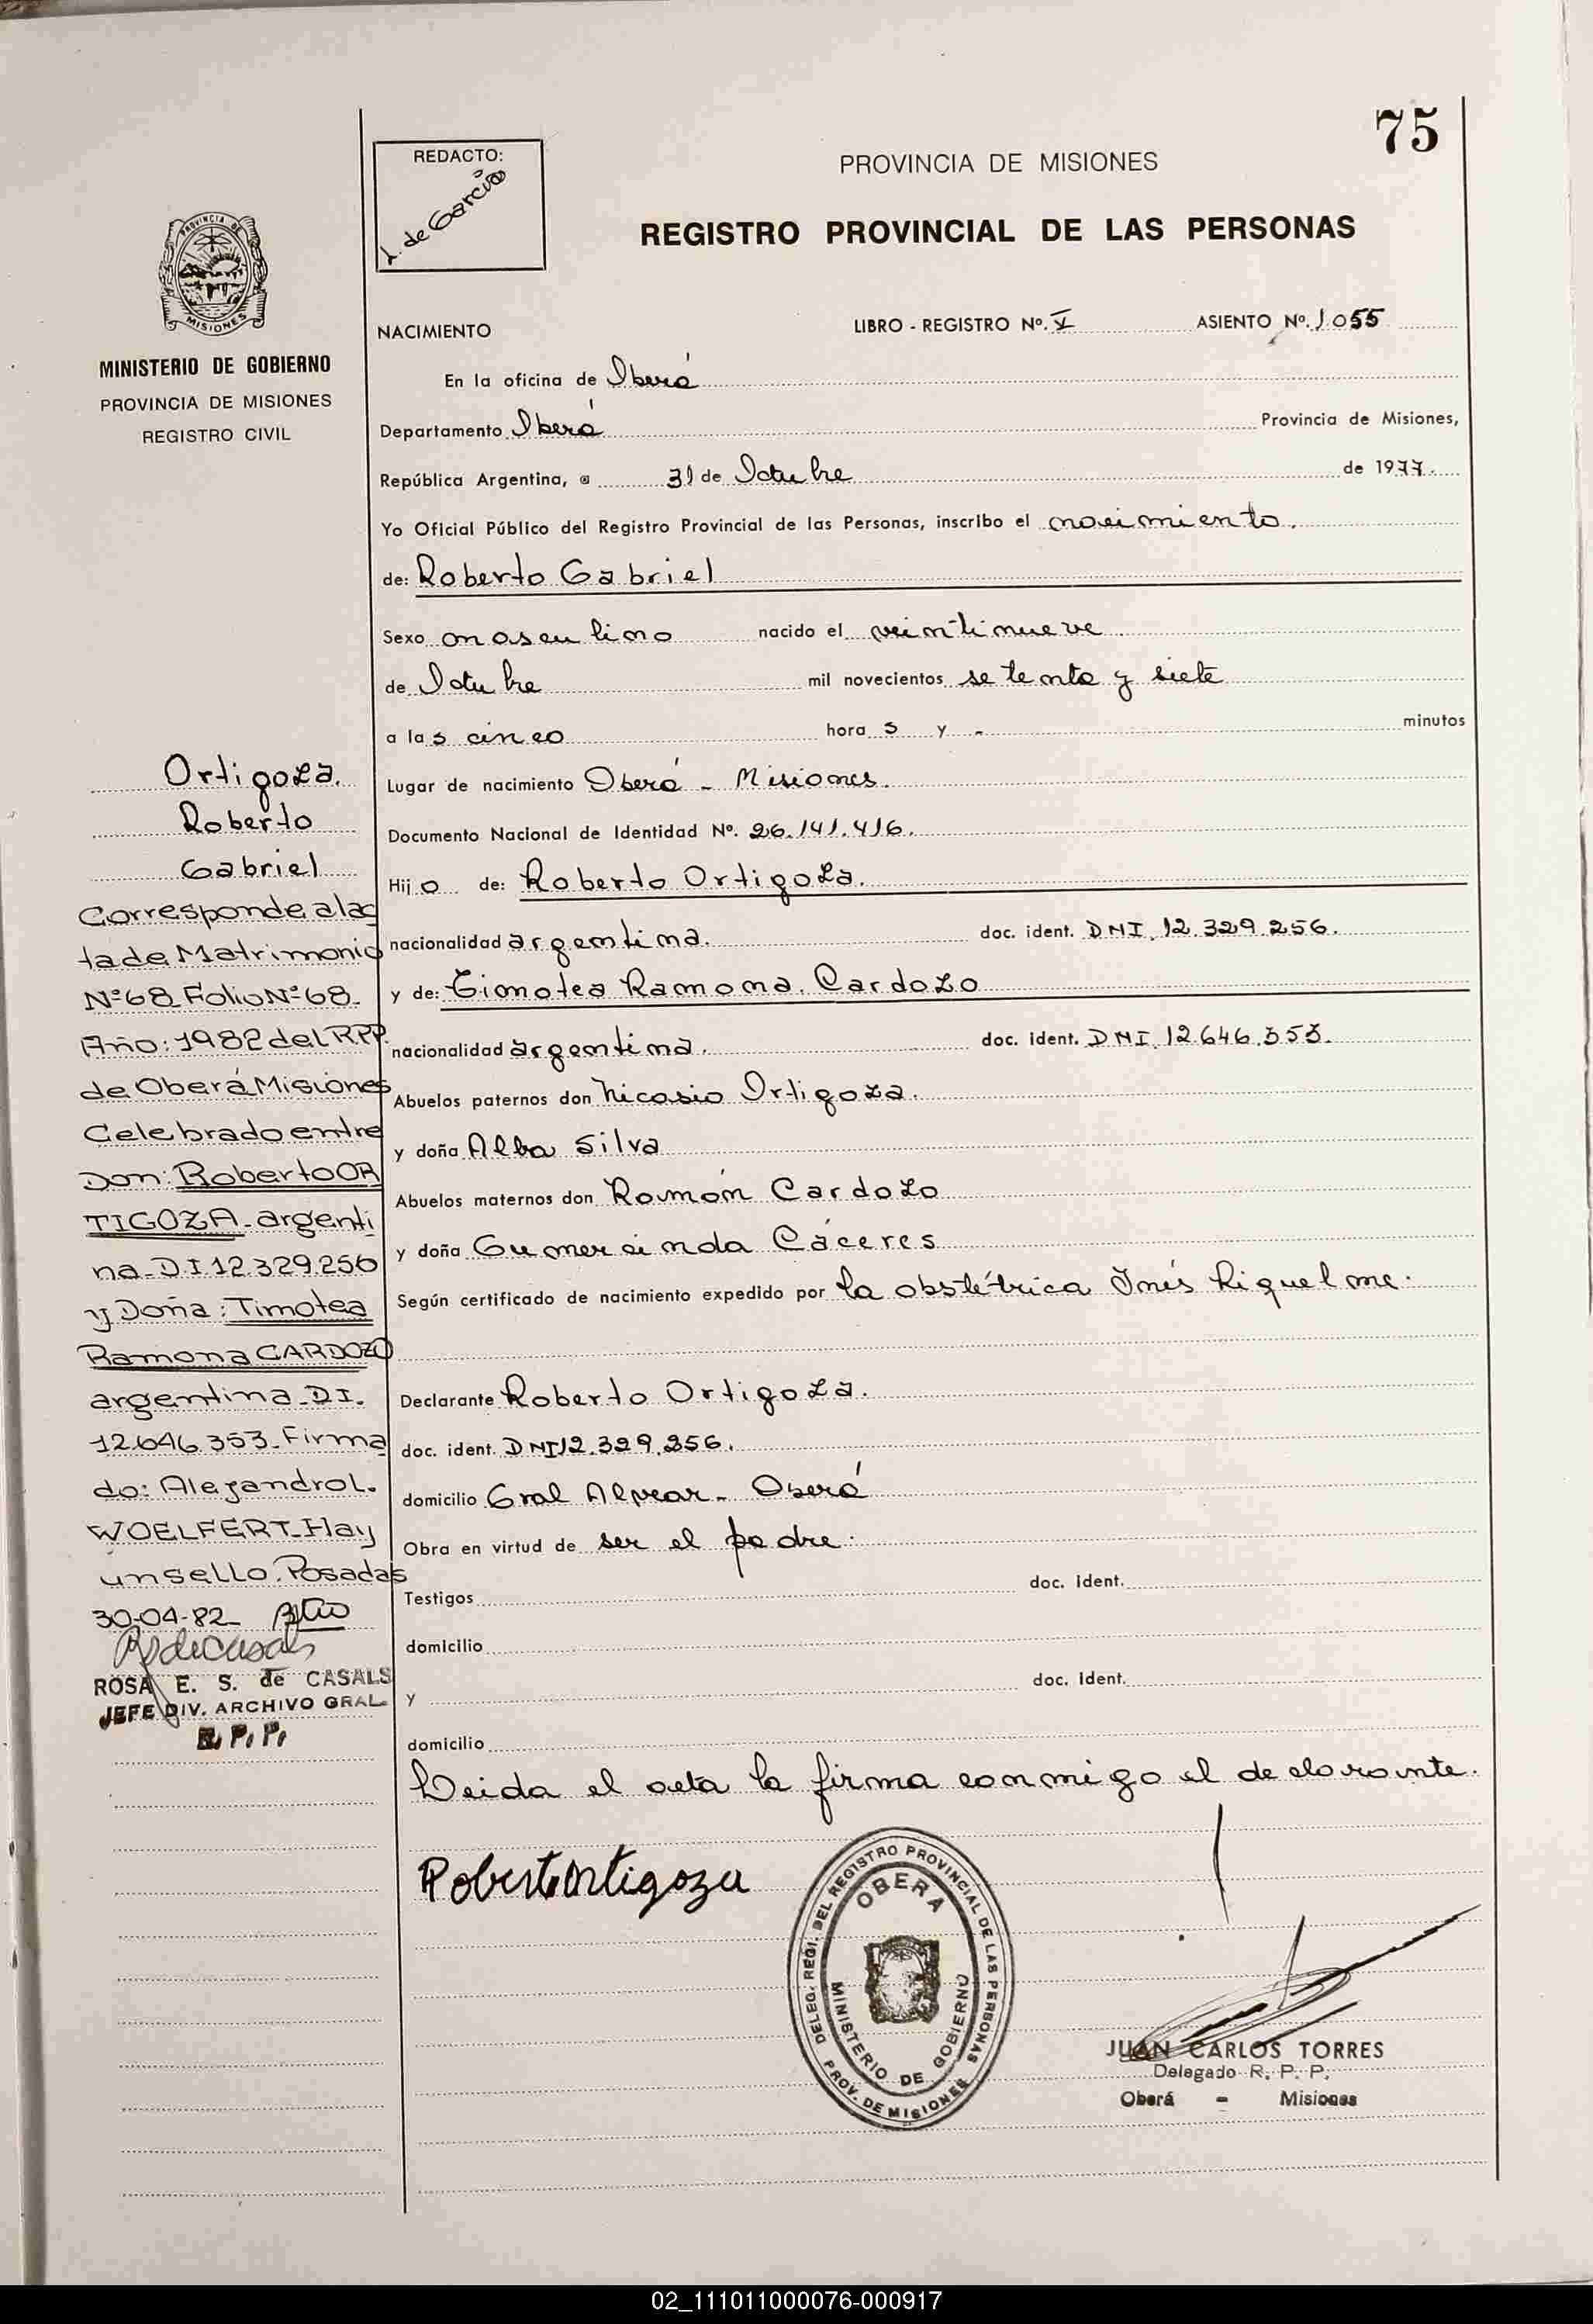 75
REDACTO:
Y. de Garcia
PROVINCIA DE MISIONES
REGISTRO PROVINCIAL DE LAS PERSONAS
PROVINCIA DE
MISIONES
MINISTERIO DE GOBIERNO
PROVINCIA DE MISIONES
REGISTRO CIVIL
NACIMIENTO LIBRO - REGISTRO Nº. V ASIENTO Nº. 1055
En la oficina de Oberá
Departamento Oberá Provincia de Misiones,
República Argentina, a 31 de Octubre de 1977.
Yo Oficial Público del Registro Provincial de las Personas, inscribo el nacimiento.
de: Roberto Gabriel
Sexo masculino nacido el veintinueve
de Octubre mil novecientos setenta y siete
a las cinco hora s y - minutos
Lugar de nacimiento Oberá - Misiones.
Documento Nacional de Identidad Nº. 26.141.416.
Hijo de: Roberto Ortigoza.
nacionalidad argentina. doc. ident. DNI. 12.329.256.
y de: Timotea Ramona Cardozo
nacionalidad argentina. doc. ident. DNI. 12.646.353.
Abuelos paternos don Nicasio Ortigoza.
y doña Alba Silva
Abuelos maternos don Ramón Cardozo
y doña Gumercinda Cáceres
Según certificado de nacimiento expedido por la obstétrica Inés Riquelme.
Declarante Roberto Ortigoza.
doc. ident. DNI 12.329.256.
domicilio Gral Alvear - Oberá
Obra en virtud de ser el padre.
Testigos doc. ident.
domicilio
y doc. ident.
domicilio
Leida el acta la firma conmigo el declarante.
Roberto Ortigoza
DELEG. REGI. DEL REGISTRO PROVINCIAL DE LAS PERSONAS
OBERA
MINISTERIO DE GOBIERNO
PROV. DE MISIONES
JUAN CARLOS TORRES
Delegado R. P. P.
Oberá - Misiones
Ortigoza.
Roberto
Gabriel
Corresponde al ac
ta de Matrimonio
Nº 68 Folio Nº 68.
Año: 1982 del R.P.P.
de Oberá Misiones
Celebrado entre
Don: Roberto OR
TIGOZA - argenti
na - D.I. 12.329.256
y Doña: Timotea
Ramona CARDOZO
argentina - D.I.
12.646.353 - Firma
do: Alejandro L.
WOELFERT - Hay
un sello. Posadas
30-04-82
ROSA E. S. de CASALS
JEFE DIV. ARCHIVO GRAL
R. P. P.
02_111011000076-000917